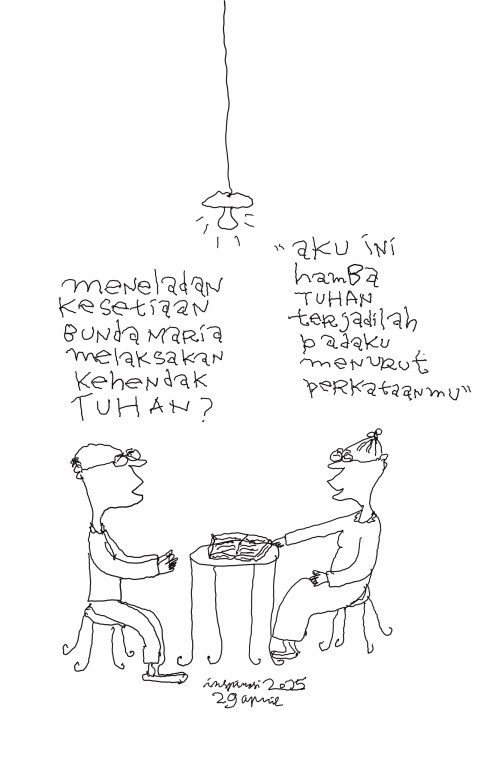 meneladan
kesetiaan
BUNDA MARIA
melaksakan
kehendak
TUHAN?
"aku ini
hamba
TUHAN
terjadilah
padaku
menurut
perkataanmu"
inspirasi 2025
29 april